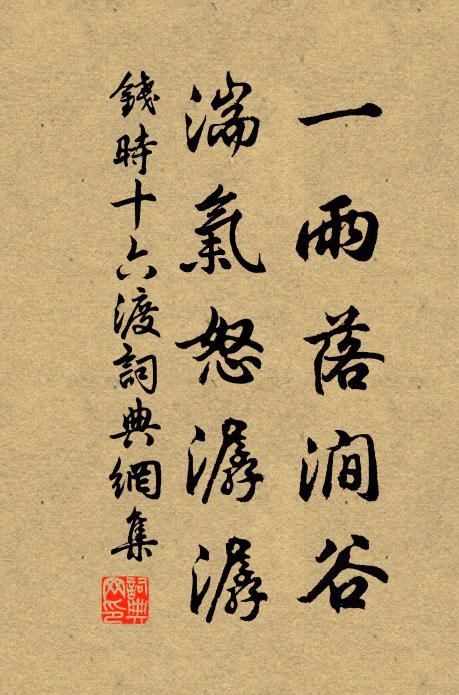 一雨落澗谷
湍氣怒潺潺
錢時十六渡詞典網集
詞典網印